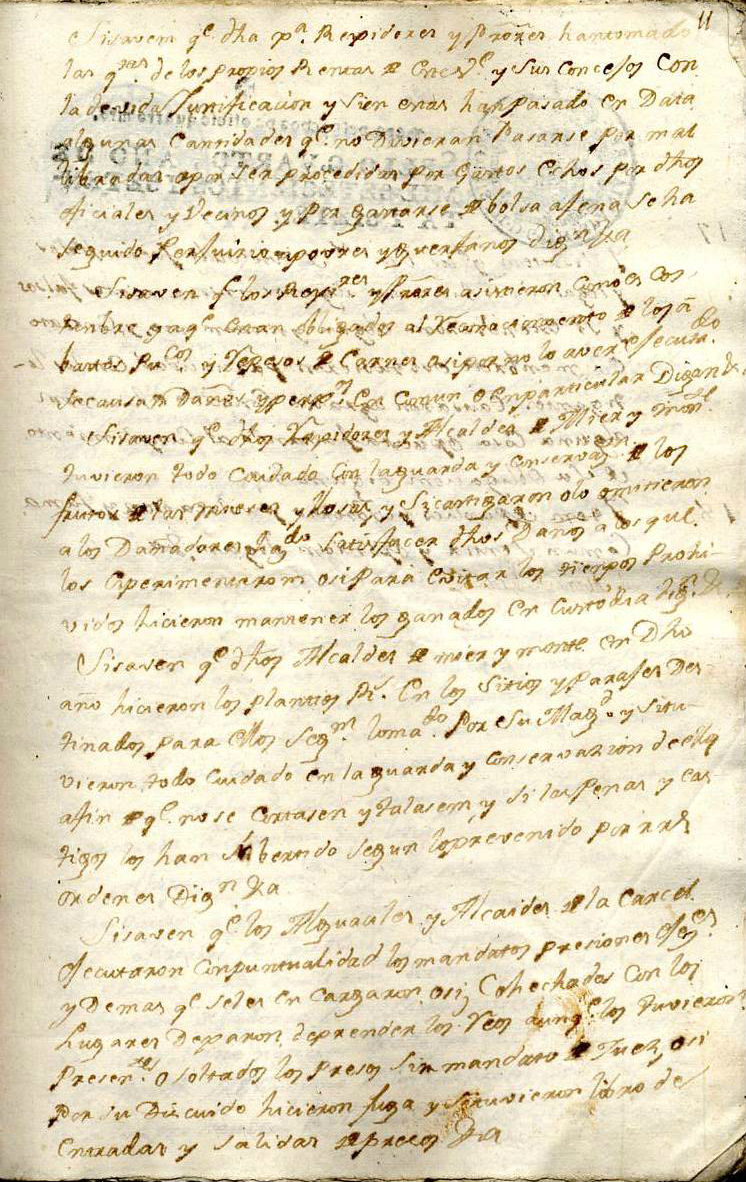 11
Sisaven qe. dha pa. Rexidores y Prores. han tomado
las qtas. de los propios Rentas de Ones Ve. y sus Concejos Con
la devida Justificacion y si en enas han pasado en Data
algunas Cantidades qe. no Devieran Pasarse por mal
libradas opor ser procedidas por Gastos echos por dhos
oficiales y Vecinos y por gastarse de bolsa agena se ha
seguido Perjuicio apovres y guerfanos dign. &a
Sisaven si los Rexres. y Prores. asistieron Como es cos-
tenbre ya qe. estan obligados al Reconocimento de los a
bastos Pucos. y Repesos de Carnes o si por no lo aver ejecutado.
se causaron Daños y perxos. en Comun o Enparticular Digan &a
Sisaven qe. dhos Rexidores y Alcaldes de Mier y Monte
tuvieron todo Cuidado Con la guarda y Conservazn. de los
frutos de las mieses y Rosas y si castigaron o lo omitieron
a los Dañadores hazdo. satisfacer dhos Daños a los qe.
los esperimentaron, o si Para evitar los tiempos Prohi-
vidos hicieron mantener los ganados en Custodia dign. &a
Sisaven qe. dhos Alcaldes de mier y monte en Dho
año hicieron los plantios Rs. En los Sitios y Parajes Des-
tinados para ellos segn. lo mado. Por Su Magd. y si tu-
vieron todo Cuidado en la guarda y Conservazion de ellos
afin de qe. no se Cortasen y talasem, y si las Penas y cas-
tigos los han Adbertido segun lo prevenido por rrs
ordenes Dign. &a
Sisaven qe. los Alguaciles y Alcaides de la Carcel
ejecutaron con puntualidad los mandatos presiones ejones.
y Demas qe. seles en Cargaron, o si Cohechados Con los
lugares Dejaron de prender los Reos aunqe. los tuvieron
Presentes. o soltados los Presos sin mandato de Juez, o si
Por su Discuido hicieron fuga y si tuvieron libro de
Entradas y Salidas de presos &a